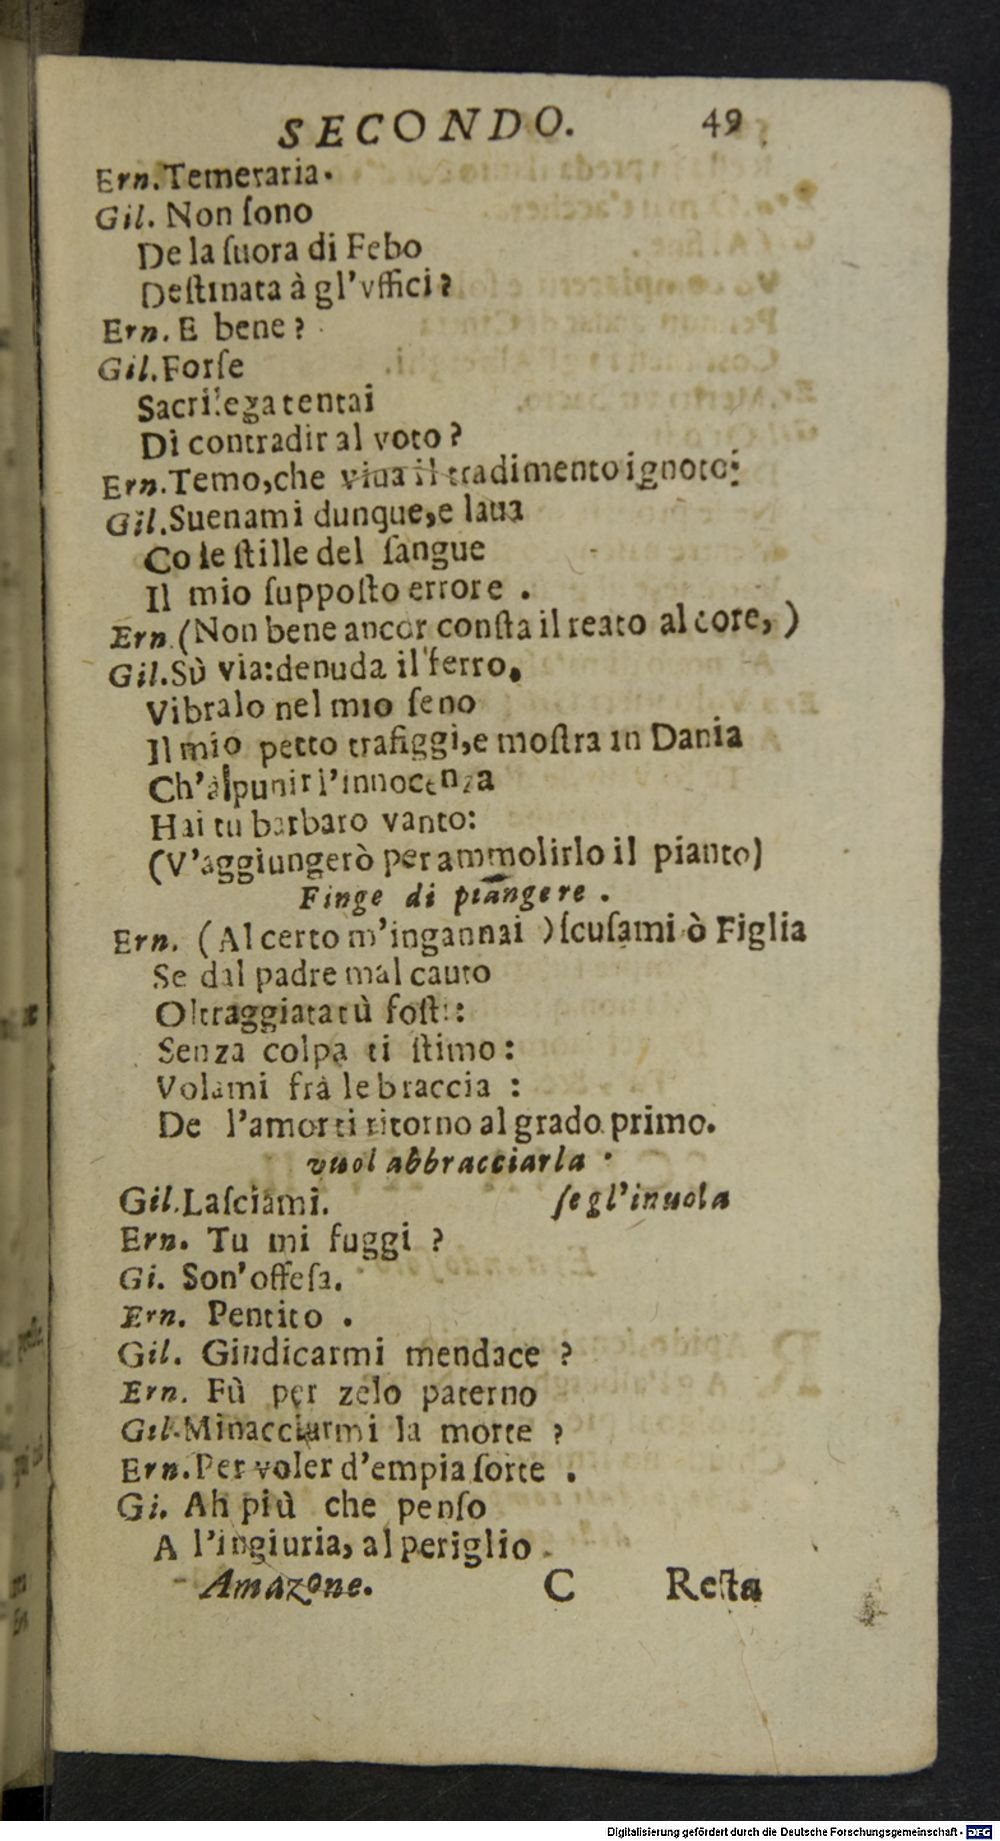 SECONDO. 49
Ern. Temeraria.
Gil. Non ſono
De la ſuora di Febo
Deſtinata à gl'vffici?
Ern. E bene?
Gil. Forſe
Sacrilega tentai
Di contradir al voto?
Ern. Temo, che viua il tradimento ignoto;
Gil. Suenami dunque, e laua
Co le ſtille del ſangue
Il mio ſuppoſto errore.
Ern. (Non bene ancor conſta il reato al core,)
Gil. Sù via: denuda il ferro,
Vibralo nel mio ſeno
Il mio petto trafiggi, e moſtra in Dania
Ch'al punir l'innocenza
Hai tu barbaro vanto:
(V'aggiungerò per ammolirlo il pianto)
Finge di piangere.
Ern. (Al certo m'ingannai) ſcuſami ò Figlia
Se dal padre mal cauto
Oltraggiata tù foſti:
Senza colpa ti ſtimo:
Volami frà le braccia:
De l'amor ti ritorno al grado primo.
vuol abbracciarla.
Gil. Laſciami. ſe gl'inuola
Ern. Tu mi fuggi?
Gi. Son'offeſa.
Ern. Pentito.
Gil. Giudicarmi mendace?
Ern. Fù per zelo paterno
Gil. Minacciarmi la morte?
Ern. Per voler d'empia ſorte.
Gi. Ah più che penſo
A l'ingiuria, al periglio
Amazone. C Reſta
Digitalisierung gefördert durch die Deutsche Forschungsgemeinschaft - DFG